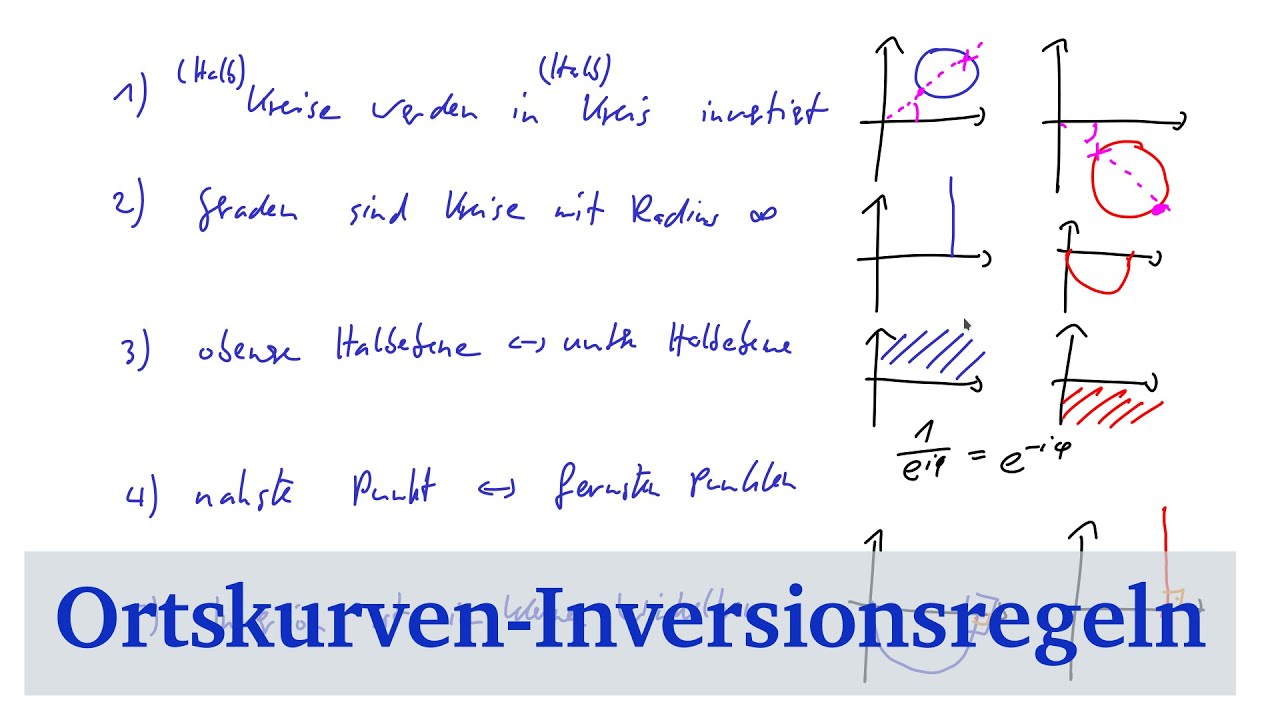 1) (Halb) Kreise werden in (Halb) Kreis invertiert
2) Geraden sind Kreise mit Radius ∞
3) obere Halbebene ↔ untere Halbebene
1/e^iφ = e^-iφ
4) nahste Punkt ↔ fernsten Punkten
Ortskurven-Inversionsregeln